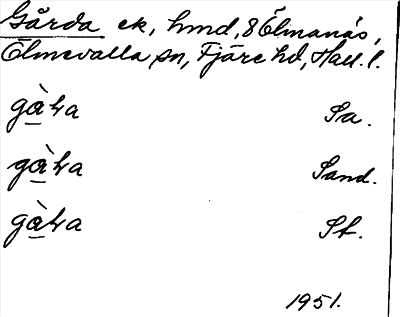 Gårda ek, hmd, 8 Ölmanäs,
Ölmevalla sn, Fjäre hd, Hall. l.
Sa.
Sand.
St.
1951.